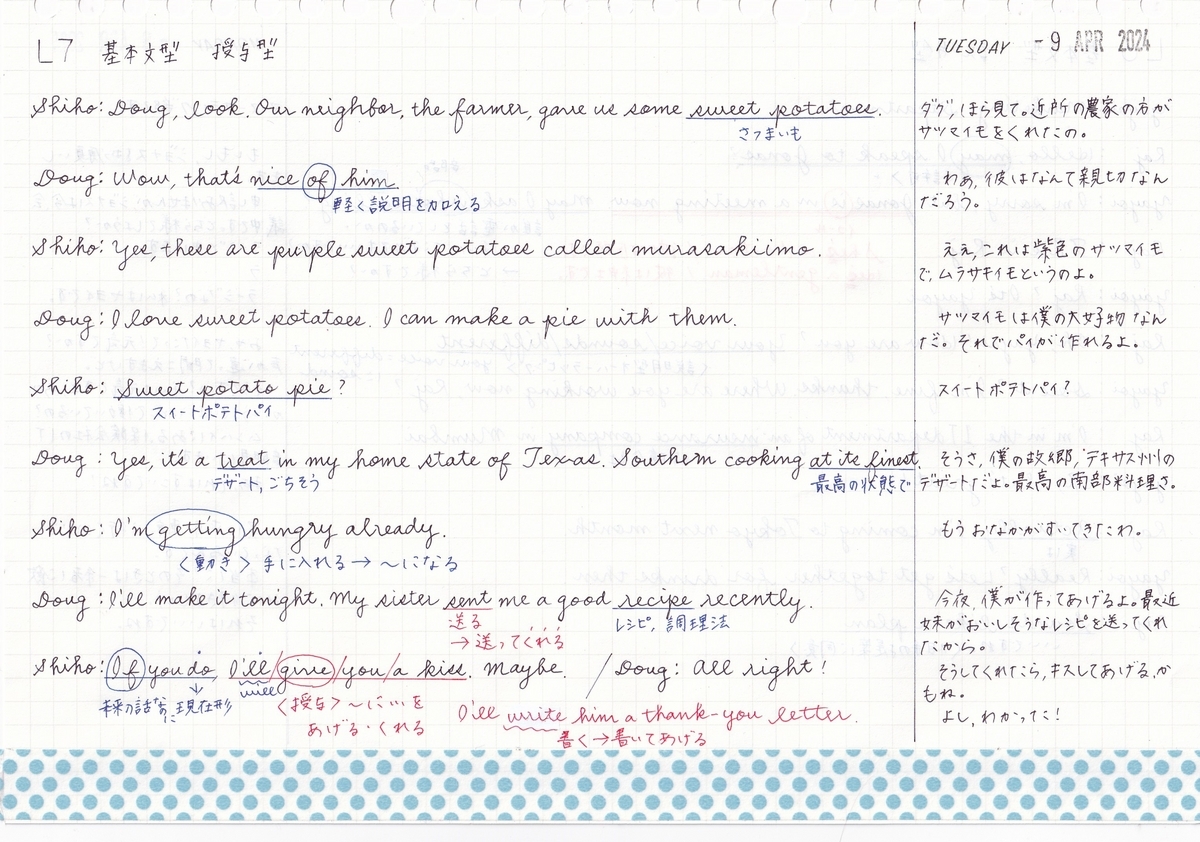 L7 基本文型 授与型
TUESDAY - 9 APR 2024
Shiho: Doug, look. Our neighbor, the farmer, gave us some sweet potatoes.
さつまいも
ダグ, ほら見て。近所の農家の方が
サツマイモをくれたの。
Doug: Wow, that's nice of him.
軽く説明を加える
わぁ, 彼はなんて親切なん
だろう。
Shiho: Yes, these are purple sweet potatoes called murasakiimo.
ええ, これは紫色のサツマイモ
で, ムラサキイモというのよ。
Doug: I love sweet potatoes. I can make a pie with them.
サツマイモは僕の大好物なん
だ。それでパイが作れるよ。
Shiho: Sweet potato pie?
スイートポテトパイ
スイートポテトパイ?
Doug: Yes, it's a treat in my home state of Texas. Southern cooking at its finest.
デザート, ごちそう
最高の状態で
そうさ, 僕の故郷, テキサス州の
デザートだよ。最高の南部料理さ。
Shiho: I'm getting hungry already.
〈動き〉 手に入れる → 〜になる
もうおなかがすいてきたわ。
Doug: I'll make it tonight. My sister sent me a good recipe recently.
送る
→ 送ってくれる
レシピ, 調理法
今夜, 僕が作ってあげるよ。最近
妹がおいしそうなレシピを送ってくれ
たから。
Shiho: If you do, I'll give you a kiss. Maybe. / Doug: All right!
will
未来の話なのに 現在形
〈授与〉 〜に…を
あげる・くれる
そうしてくれたら, キスしてあげる, か
もね。
よし, わかった!
I'll write him a thank-you letter.
書く → 書いてあげる